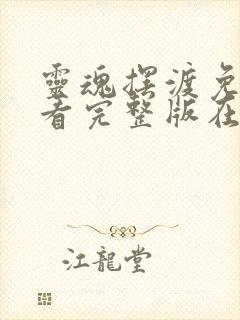 靈魂摆渡免
看完整版在
江龍堂